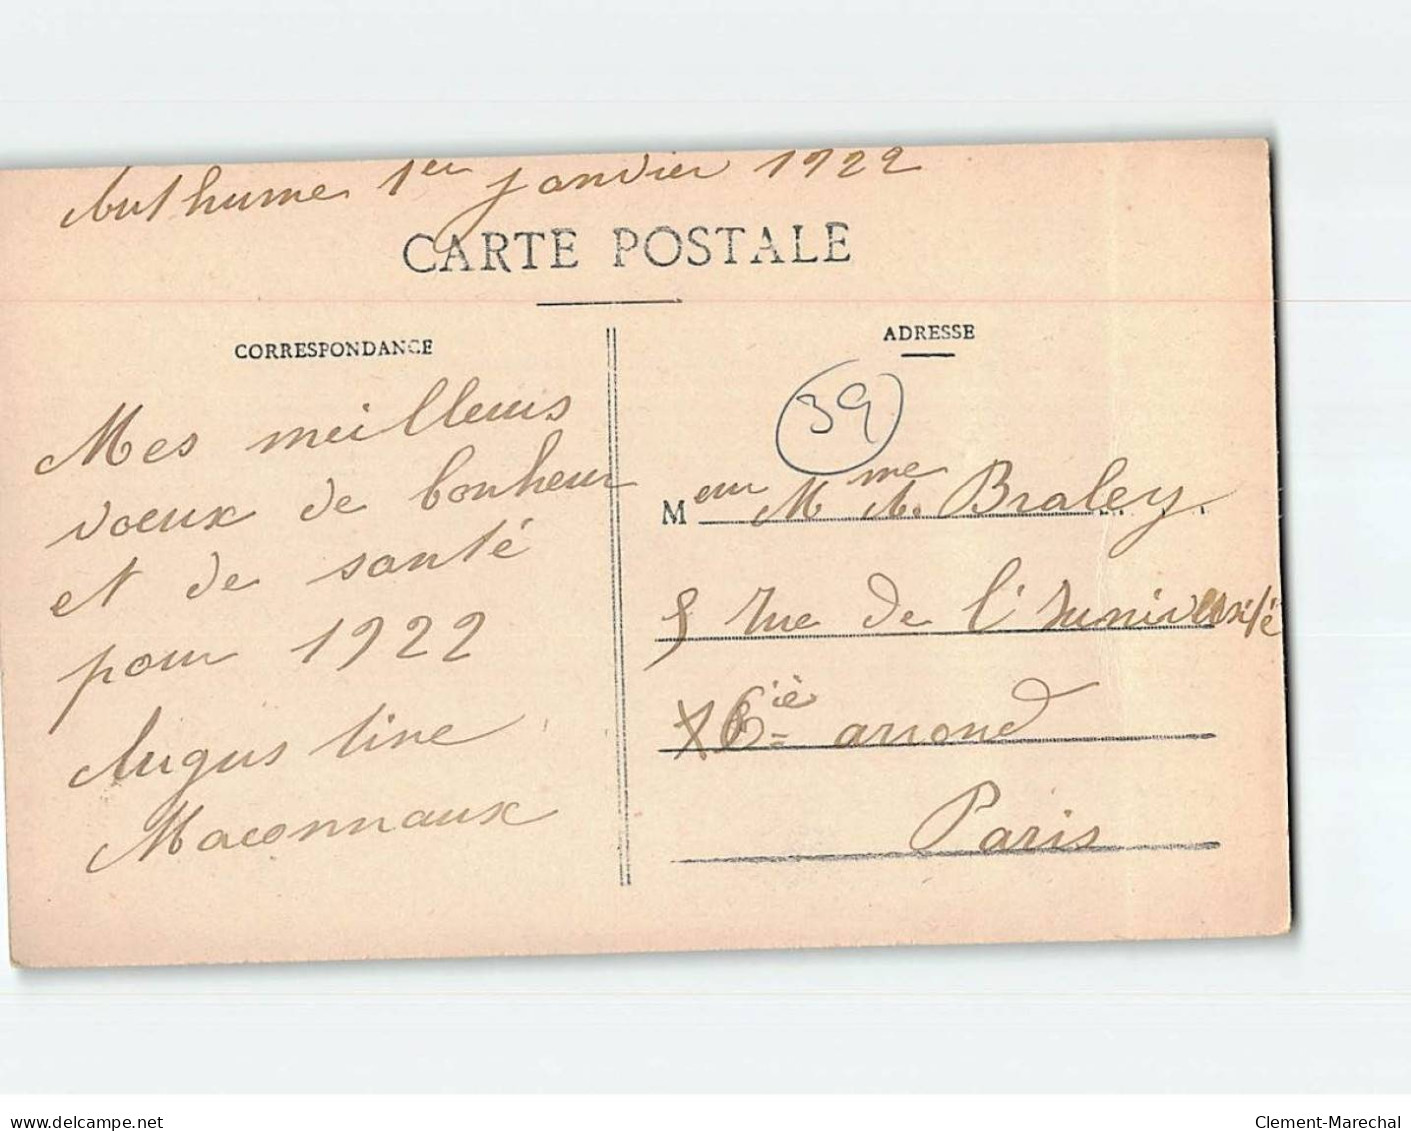 Authume 1er janvier 1922
CARTE POSTALE
CORRESPONDANCE
Mes meilleurs
voeux de bonheur
et de santé
pour 1922
Augustine
Maconnaux
ADRESSE
39
Meur Mme A. Braley
5 rue de l'université
arrond
Paris
www.delcampe.net
Clement-Marechal